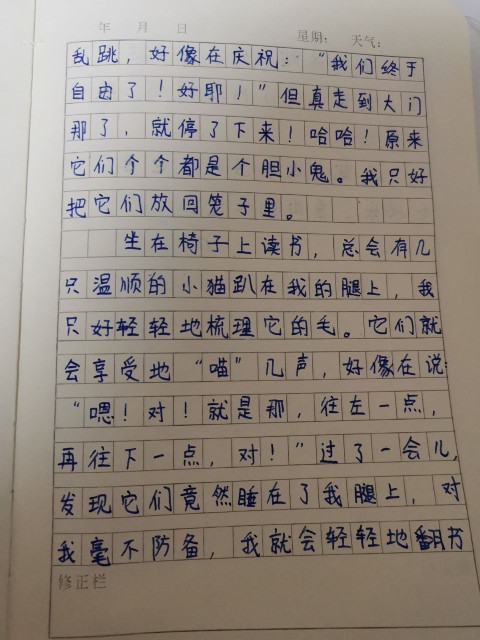 年 月 日 星期： 天气：
乱跳，好像在庆祝：“我们终于
自由了！好耶！”但真走到大门
那了，就停了下来！哈哈！原来
它们个个都是个胆小鬼。我只好
把它们放回笼子里。
坐在椅子上读书，总会有几
只温顺的小猫趴在我的腿上，我
只好轻轻地梳理它的毛。它们就
会享受地“喵”几声，好像在说：
“嗯！对！就是那，往左一点，
再往下一点，对！”过了一会儿，
发现它们竟然睡在了我腿上，对
我毫不防备，我就会轻轻地翻书
修正栏